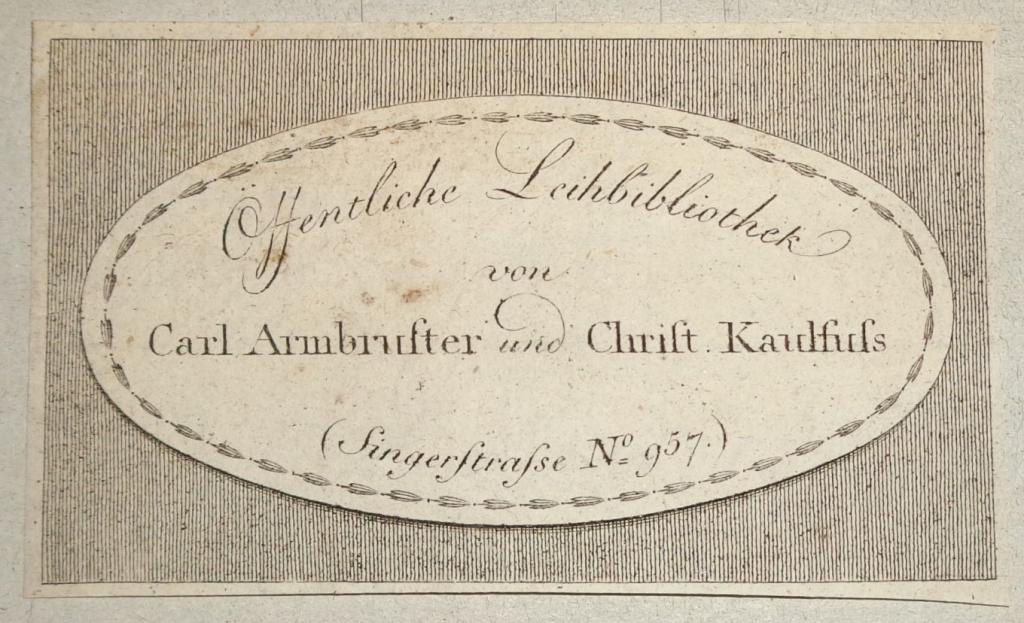 Öffentliche Leihbibliothek
von
Carl Armbruſter und Chriſt. Kaulfuſs
(Singerſtraſse Nº 957.)